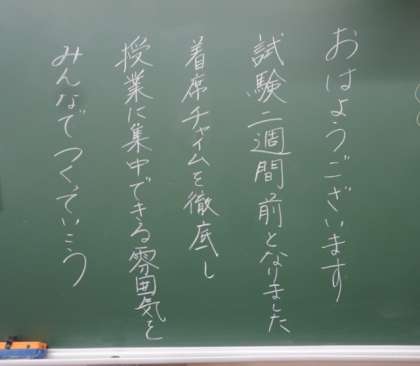 おはようございます
試験二週間前となりました
着席チャイムを徹底し
授業に集中できる雰囲気を
みんなでつくっていこう